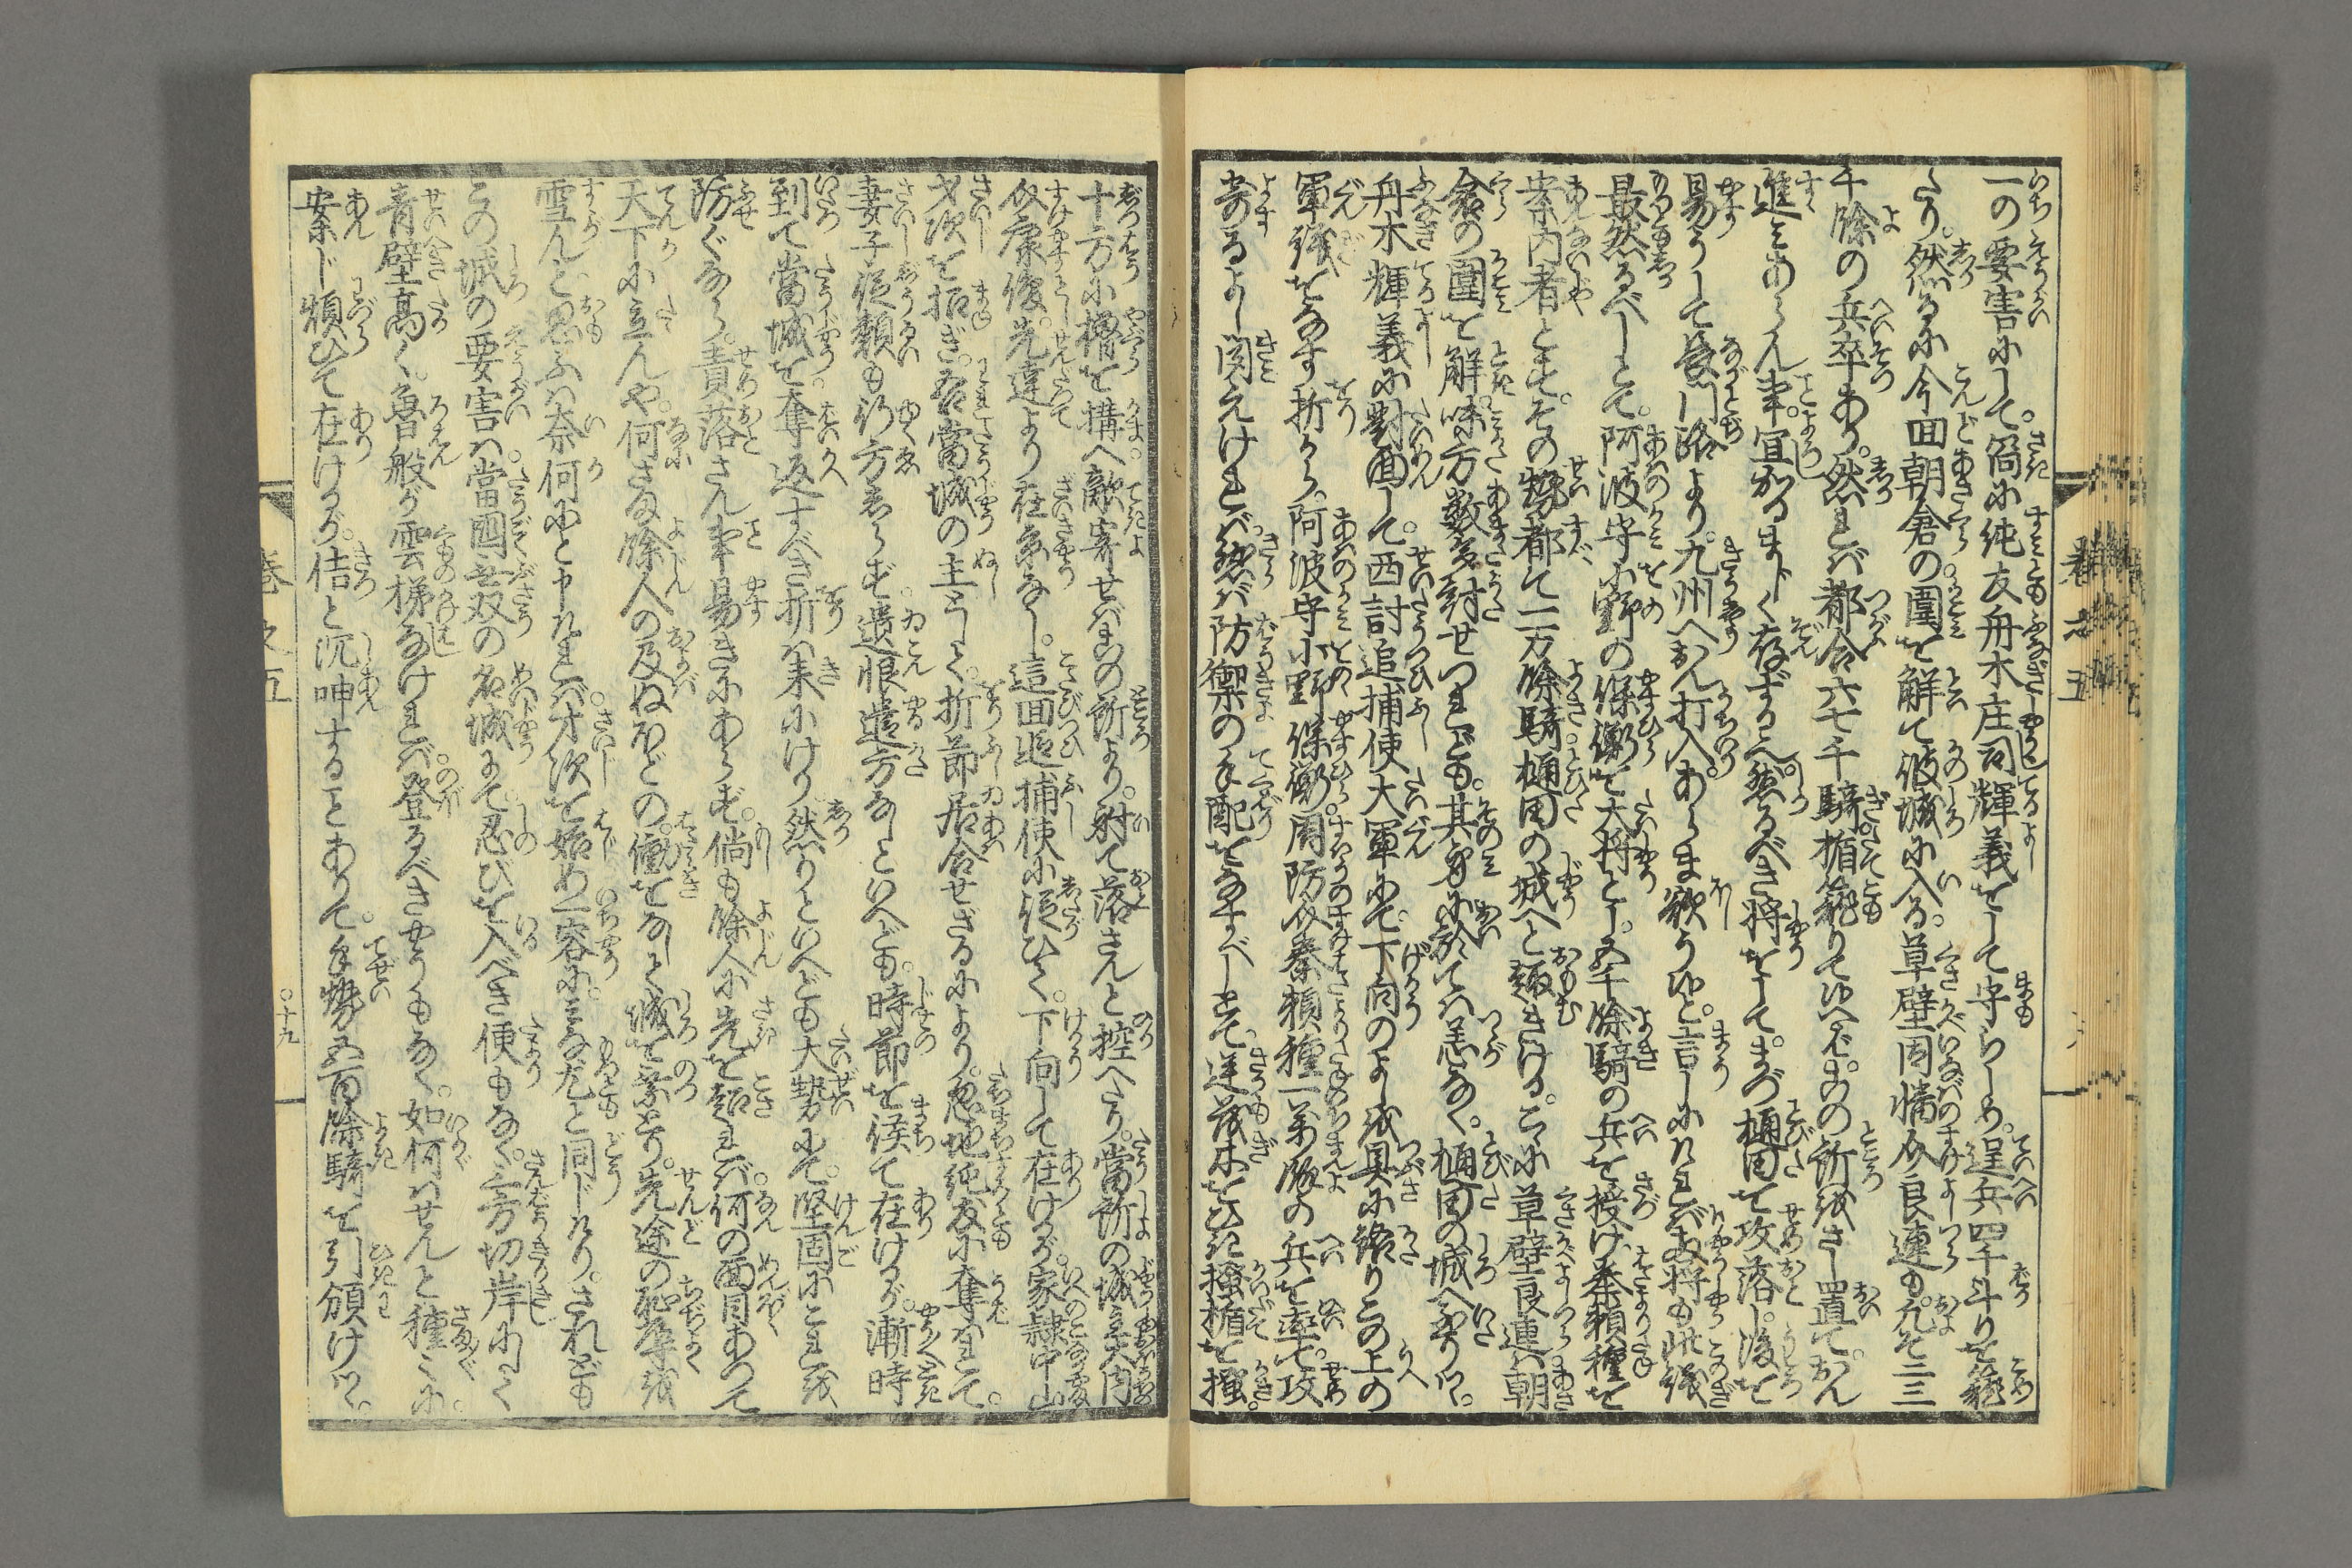 一の要害にして。箇に純友舟木庄司輝義をして守らしめ。逞兵四千斗りを籠
たり。然るに今回朝倉の圍を解て彼城に入る。草壁因幡介良連も凡そ二三
千餘の兵卒あり。然れば都合六七千騎楯籠りて候へば。此の所をさし置て。おん
進みあらん事。宜かるまじく存ずる。然るべき將をして。まづ樋田を攻落し。後を
易うして長門路より。九州へおん打入あらま欲う候と。言しにければ両将も此議
最然るべしとて。阿波守小野の保衡を大將とし。五千餘騎の兵を授け秦頼種を
案内者とし。その勢都て一万餘騎樋田の城へと趣きける。こゝに草壁良連ハ朝
倉の圍を解。味方数多討せつれども。其身に於てハ恙なく。樋田の城へ参りつ。
舟木輝義に對面して。西討追捕使大軍にて。下向のよし具に語りこの上の
軍議をなす折から。阿波守小野保衡。周防介秦頼種一萬餘の兵を率て。攻
寄るよし聞えければ。然ば防禦の手配をなすべしとて。逆茂木をひき掻楯を掻。
十方に櫓を構へ敵寄せば此の所より。射て落さんと控へたり。當所の城主大内
介康俊。先達より在京なし。這回追捕使に従ひて。下向して在けるが。家隷中山
才次を招ぎ。吾當城の主として。折節居合せざるにより。忽地純友に奪はれて。
妻子従類も行方しらず。遺恨遣方なしといへども。時節を俟て在けるが。漸時
到て當城を。奪返すべき折ハ来にけり然りといへども大勢にて。堅固にこれを
防ぐなら。責落さん事易きにあらず。倘も餘人に先を越れバ。何の面目あつて
天下に立んや。何さま餘人の及ねほどの。働をなして城を乗とり。先途の恥辱を
雪んと思ふハ奈何にと申ければ。才次を始め一容に。みな尤と同じけり。されども
この城の要害ハ。當國無双の名城にて。忍びを入べき便もなく。三方切岸にして
青壁高く。魯般が雲梯なければ。登るべきやうもなく。如何ハせんと種々に。
案じ煩ひて在けるが。佶と沉呻することありて。手勢五百餘騎を引領けつ。
卷之五
○十九